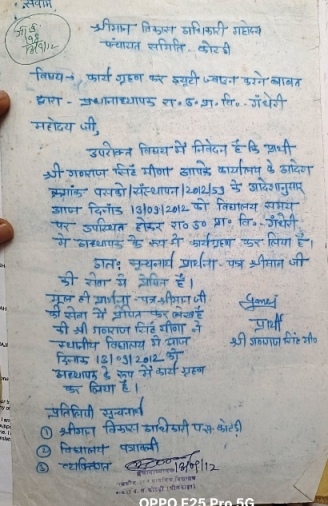 सेवामें
श्रीमान विकास अधिकारी महोदय
पंचायत समिति - कोटड़ी
विषय-: कार्य ग्रहण कर ड्यूटी ज्वाइन करने बाबत
द्वारा - प्रधानाध्यापक रा. उ. प्रा. वि. -
महोदय जी,
उपरोक्त विषय में निवेदन है कि प्रार्थी
श्री गणराज सिंह मीणा आपके कार्यालय के आदेश
क्रमांक /संस्थापन/2012/53 के आदेशानुसार
आज दिनांक 13/09/2012 को विद्यालय समय
पर उपस्थित होकर रा. उ. प्रा. वि. -
में अध्यापक के रूप में कार्यग्रहण कर लिया है।
अतः सूचनार्थ प्रार्थना - पत्र श्रीमान जी
की सेवा में प्रेषित है।
मूल ही प्रार्थना - पत्र श्रीमान जी
की सेवा में प्रेषित कर
की श्री गणराज सिंह मीणा ने
स्थानीय विद्यालय में आज
दिनांक 13/09/2012 को
अध्यापक के रूप में कार्य ग्रहण
कर लिया है।
प्रार्थी
श्री गणराज सिंह मीणा
प्रतिलिपी सूचनार्थ
① श्रीमान विकास अधिकारी प.स. कोटड़ी
② विद्यालय पत्रावली
③ व्यक्तिगत
13/09/12
OPPO F25 Pro 5G